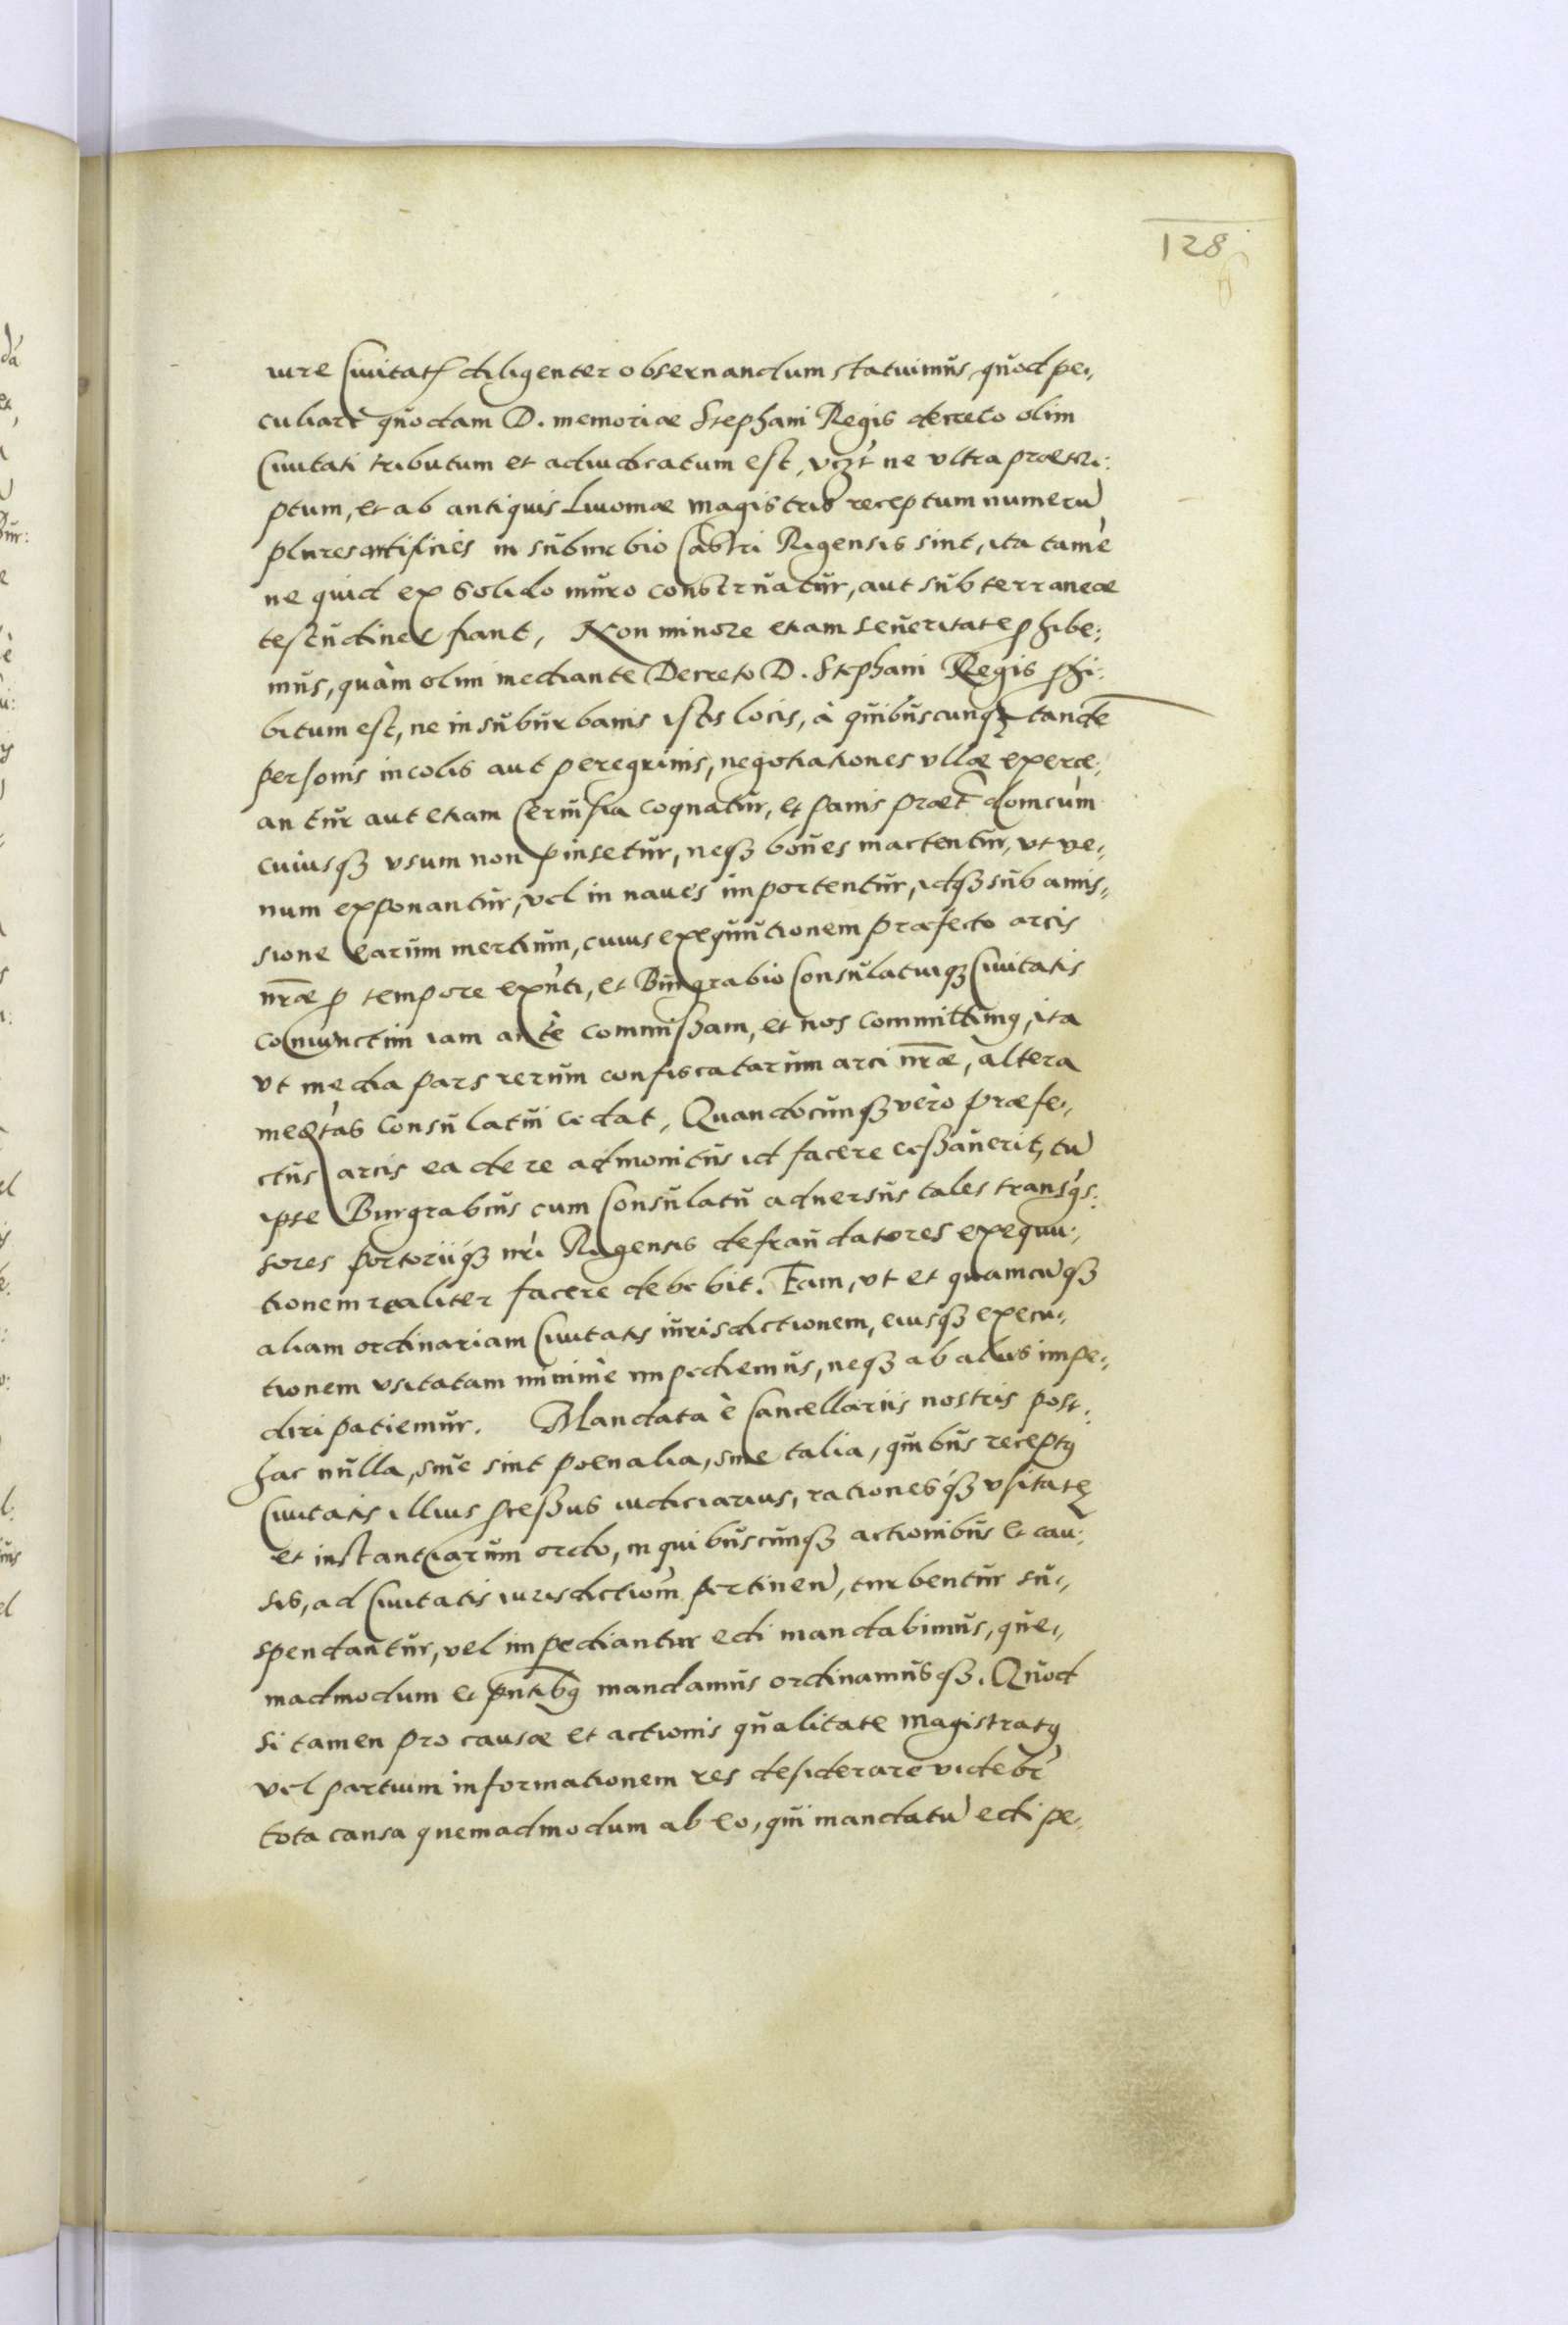 128
iure Ciuitatis diligenter obseruandum statuimus, quod pe-,
culiari quodam D. memoriae Stephani Regis decreto olim
Ciuitati tributum et adiudicatum est, vczt ne vltra praescri:
ptum, et ab antiquis Liuoniae magistris receptum numerũ
plures artifices in suburbio Castri Rigensis sint, ita tamẽ
ne quid ex solido muro construatur, aut subterraneae
testudines fiant, Non minore etiam seueritate phibe:
mus, quàm olim mediante Decreto D. Stephani Regis phi:
bitum est, ne in suburbanis istis locis, à quibuscunq tandẽ
personis incolis aut peregrinis, negotiationes vllae exerce,
antur aut etiam Ceruisia coquatur, et panis praet domcum
cuiusq vsum non pinsetur, neq boues mactentur, vt ve-,
num exponantur, vel in naues importentur, idq sub amis-,
sione earum mertium, cuius exequutionem praefecto arcis
nr̃ae p tempore exñti, et Burgrabio Consulatuiq Ciuitatis
coniunctim iam antè commissam, et nos committimq, ita
vt media pars rerum confiscatarum arci nr̃ae, altera
medtas Consulatui cedat, Quandocunq verò praefe-,
ctus arcis ea de re admonitus id facere cessauerit, tũ
ipse Burgrabius cum Consulatu aduersus tales transgs:
sores portoriiq nri Rigensis defraudatores exequu:,
tionem realiter facere debebit. Eam, vt et quamcũq
aliam ordinariam Ciuitatis iurisdictionem, eiusq execu-,
tionem vsitatam minimè impediemus, neq ab aliis impe-,
diri patiemur. Mandata è Cancellariis nostris post-,
hac nulla, siue sint poenalia, siue talia, quibus receptq
Ciuitatis illius pcessus iudiciarius, rationesq vsitatę
et instantiarum ordo, in quibuscunq actionibus et cau:
sis, ad Ciuitatis iurisdictiom pertinen, turbentur su-,
spendantur, vel impediantur edi mandabimus, que-,
madmodum et pntibq mandamus ordinamusq. Quod
si tamen pro causae et actionis qualitate magistratq
vel partium informationem res desiderare videbr
tota causa quemadmodum ab eo, qui mandatũ edi pe-,